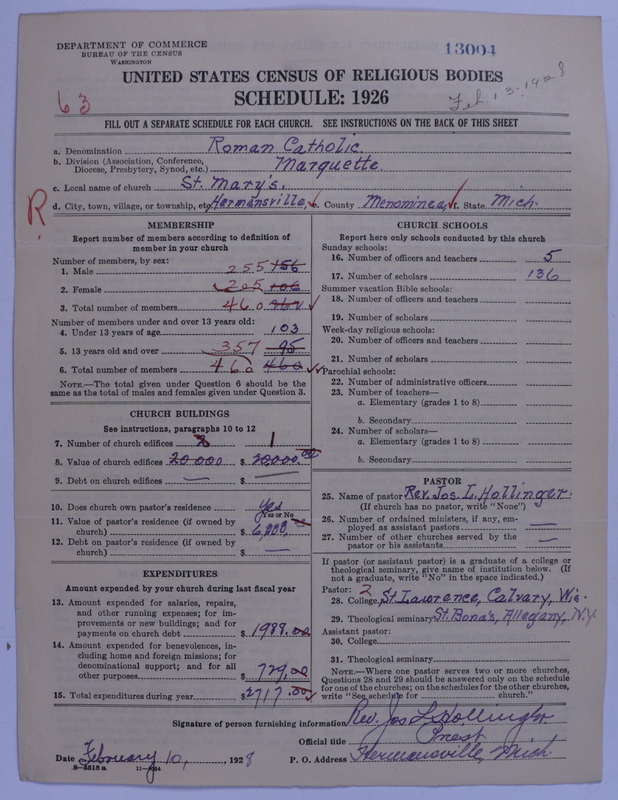 DEPARTMENT OF COMMERCE
BUREAU OF THE CENSUS
WASHINGTON
13004
UNITED STATES CENSUS OF RELIGIOUS BODIES
SCHEDULE: 1926
63
Feb. 13-1928
FILL OUT A SEPARATE SCHEDULE FOR EACH CHURCH. SEE INSTRUCTIONS ON THE BACK OF THIS SHEET
a. Denomination Roman Catholic.
b. Division (Association, Conference, Diocese, Presbytery, Synod, etc.) Marquette.
c. Local name of church St. Mary's.
R.
d. City, town, village, or township, etc. Hermansville, e. County Menominee, f. State Mich.
MEMBERSHIP
Report number of members according to definition of
member in your church
Number of members, by sex:
1. Male 255 156
2. Female 205 106
3. Total number of members 460
Number of members under and over 13 years old:
4. Under 13 years of age 103
5. 13 years old and over 357 95
6. Total number of members 460 460
NOTE.—The total given under Question 6 should be the
same as the total of males and females given under Question 3.
CHURCH BUILDINGS
See instructions, paragraphs 10 to 12
7. Number of church edifices 2 1
8. Value of church edifices 20000 $ 20000.00
9. Debt on church edifices — $ —
10. Does church own pastor's residence yes
Yes or No
11. Value of pastor's residence (if owned by
church) $ 6,000.00
12. Debt on pastor's residence (if owned by
church) $ —
EXPENDITURES
Amount expended by your church during last fiscal year
13. Amount expended for salaries, repairs,
and other running expenses; for im-
provements or new buildings; and for
payments on church debt $ 1988.00
14. Amount expended for benevolences, in-
cluding home and foreign missions; for
denominational support; and for all
other purposes $ 729.00
15. Total expenditures during year $ 2717.00
CHURCH SCHOOLS
Report here only schools conducted by this church
Sunday schools:
16. Number of officers and teachers 5
17. Number of scholars 136
Summer vacation Bible schools:
18. Number of officers and teachers
19. Number of scholars
Week-day religious schools:
20. Number of officers and teachers
21. Number of scholars
Parochial schools:
22. Number of administrative officers
23. Number of teachers—
a. Elementary (grades 1 to 8)
b. Secondary
24. Number of scholars—
a. Elementary (grades 1 to 8)
b. Secondary
PASTOR
25. Name of pastor Rev. Jos. L. Hollinger.
(If church has no pastor, write "None")
26. Number of ordained ministers, if any, em-
ployed as assistant pastors —
27. Number of other churches served by the
pastor or his assistants —
If pastor (or assistant pastor) is a graduate of a college or
theological seminary, give name of institution below. (If
not a graduate, write "No" in the space indicated.)
Pastor: 2
28. College St. Lawrence, Calvary, Wis.
29. Theological seminary St. Bona's, Allegany, N.Y.
Assistant pastor:
30. College
31. Theological seminary
NOTE.—Where one pastor serves two or more churches,
Questions 28 and 29 should be answered only on the schedule
for one of the churches; on the schedules for the other churches,
write "See schedule for church."
Signature of person furnishing information Rev. Jos L Hollinger
Official title Priest
Date February 10, 1928
P. O. Address Hermansville, Mich.
8—5515 a